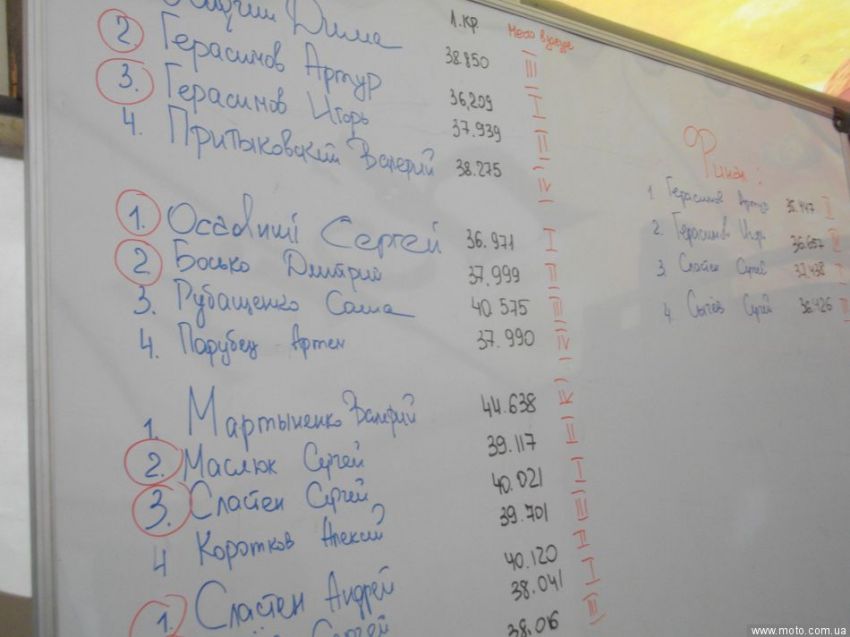 Дима Л.кр Место в заезде
2. Герасимов Артур 38.850 III
3. Герасимов Игорь 36,209 I
4. Притыковский Валерий 37.939 II
38.275 IV
1. Осадчий Сергей 36.971 I
2. Босько Дмитрий 37.999 II
3. Рубащенко Саша 40.575 III
4. Парубец Артем 37.990 IV
1. Мартыненко Валерий 44.638 IV
2. Маслюк Сергей 39.117 II
3. Сластен Сергей 40.021 I
4 Коротков Алексей 39.701 III
40.120 II
1. Сластен Андрей 38.041 I
Сергей 38.016 III
Финал:
1. Герасимов Артур
2. Герасимов Игорь 36.657
3. Сластен Сергей 37.438
4. Сычёв Сергей 36.426
www.moto.com.ua